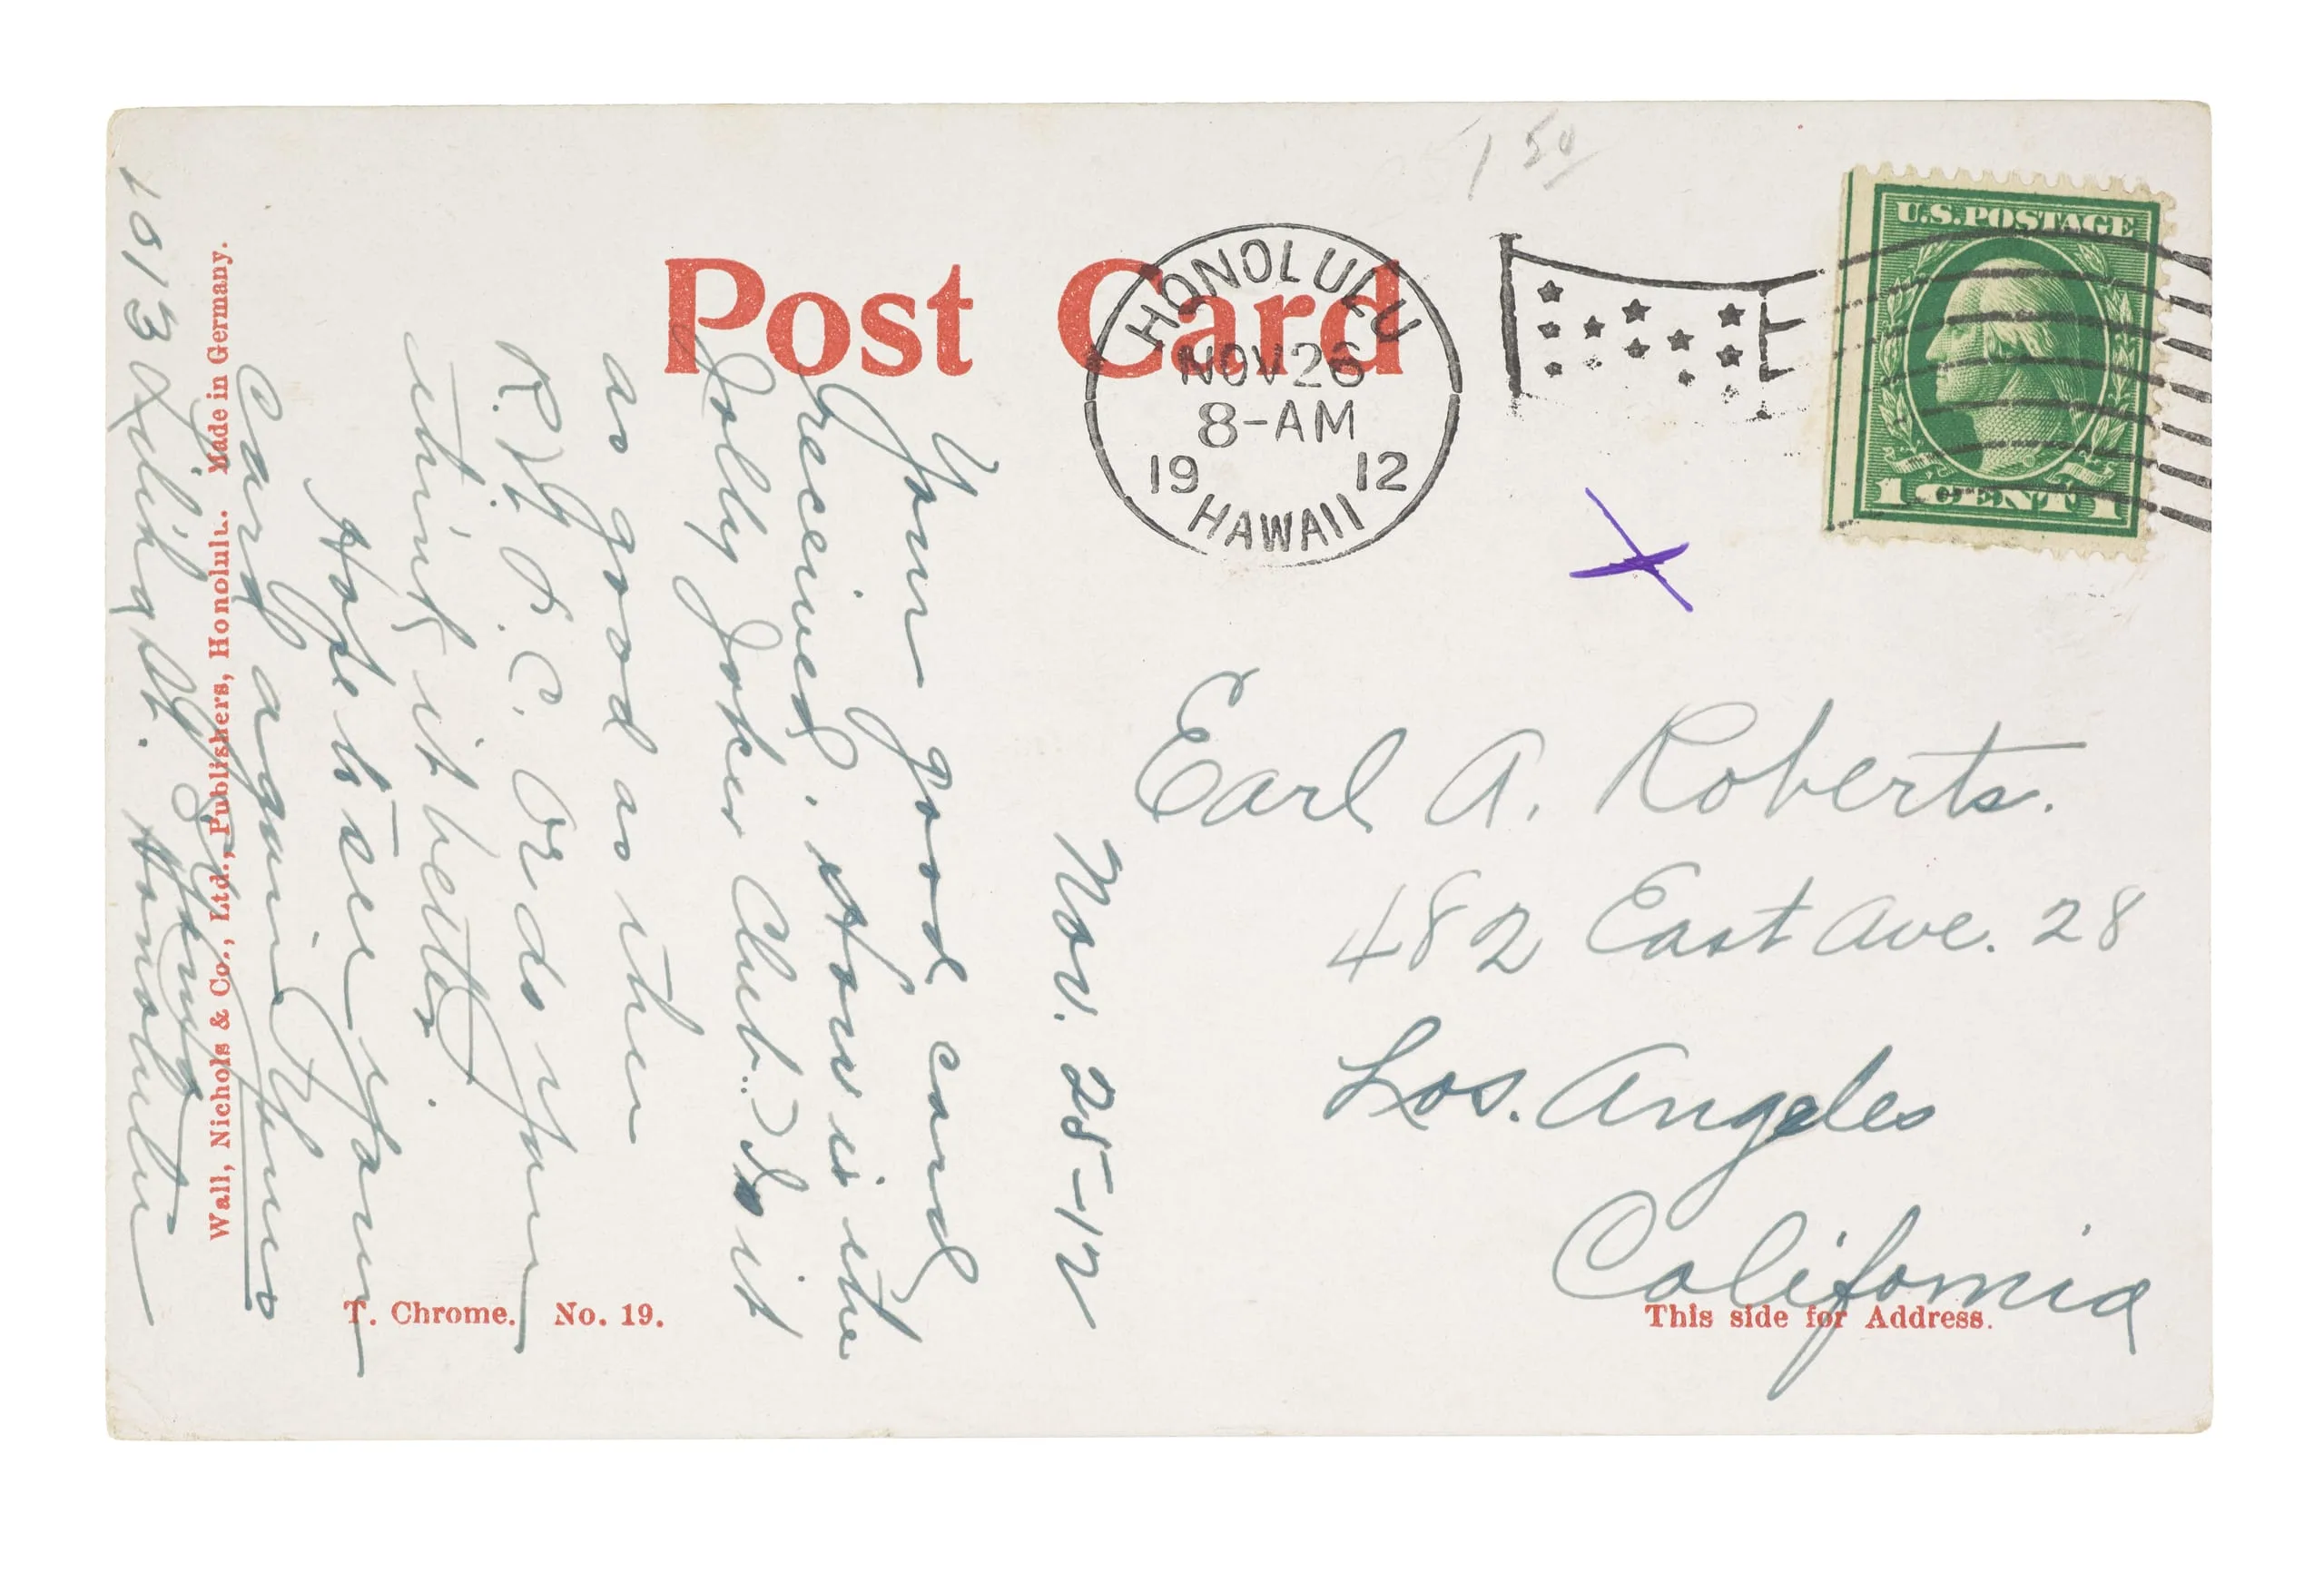 Post Card
1 50
HONOLULU
NOV 26
8-AM
19 12
HAWAII
U.S. POSTAGE
1 CENT 1
Nov. 25-12
Your good card
received. How is the
Jolly Joker Club? Is it
as good as the
P. C. Ords your
think it better.
Hope to see your
Card again
1013 Liliha St. Honolulu
Wall, Nichols & Co., Ltd., Publishers, Honolulu. Made in Germany.
T. Chrome. No. 19.
Earl A. Roberts.
482 East Ave. 28
Los. Angeles
California
This side for Address.